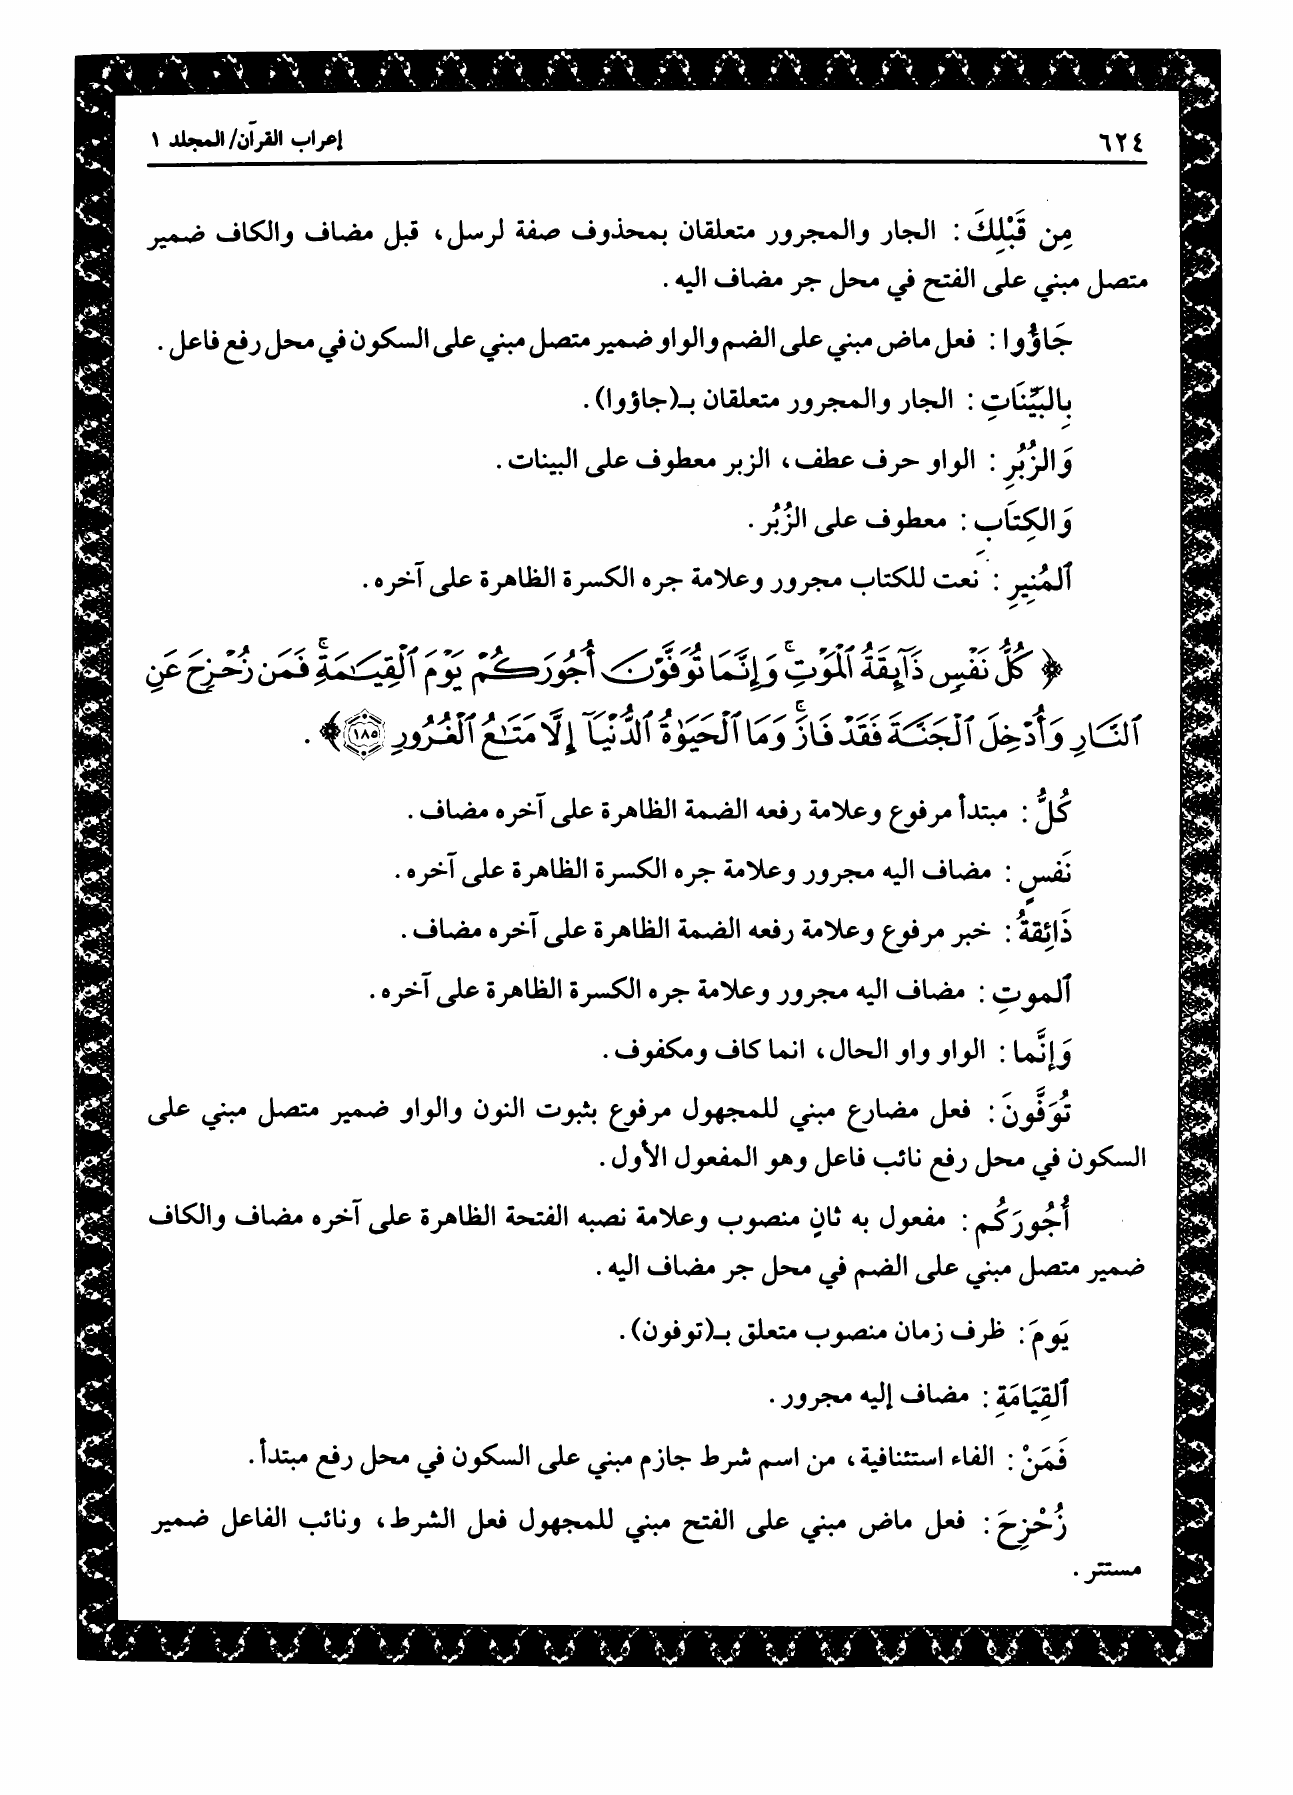 ٦٢٤
إعراب القرآن/ المجلد ١
مِن قَبْلِكَ: الجار والمجرور متعلقان بمحذوف صفة لرسل، قبل مضاف والكاف ضمير
متصل مبني على الفتح في محل جر مضاف اليه.
جَاؤُوا: فعل ماض مبني على الضم والواو ضمير متصل مبني على السكون في محل رفع فاعل.
بِالبَيِّنَاتِ: الجار والمجرور متعلقان بـ(جاؤوا).
وَالزُبُرِ: الواو حرف عطف، الزبر معطوف على البينات.
وَالكِتَابِ: معطوف على الزُبُر.
ٱلمُنِيرِ: نعت للكتاب مجرور وعلامة جره الكسرة الظاهرة على آخره.
﴿كُلُّ نَفْسٍ ذَآئِقَةُ ٱلْمَوْتِۗ وَإِنَّمَا تُوَفَّوْنَ أُجُورَكُمْ يَوْمَ ٱلْقِيَـٰمَةِۖ فَمَن زُحْزِحَ عَنِ
ٱلنَّارِ وَأُدْخِلَ ٱلْجَنَّةَ فَقَدْ فَازَۗ وَمَا ٱلْحَيَوٰةُ ٱلدُّنْيَآ إِلَّا مَتَـٰعُ ٱلْغُرُورِ ١٨٥﴾.
كُلُّ: مبتدأ مرفوع وعلامة رفعه الضمة الظاهرة على آخره مضاف.
نَفسٍ: مضاف اليه مجرور وعلامة جره الكسرة الظاهرة على آخره.
ذَائِقةُ: خبر مرفوع وعلامة رفعه الضمة الظاهرة على آخره مضاف.
ٱلموتِ: مضاف اليه مجرور وعلامة جره الكسرة الظاهرة على آخره.
وَإنَّما: الواو واو الحال، انما كاف ومكفوف.
تُوَفَّونَ: فعل مضارع مبني للمجهول مرفوع بثبوت النون والواو ضمير متصل مبني على
السكون في محل رفع نائب فاعل وهو المفعول الأول.
أُجُورَكُم: مفعول به ثانٍ منصوب وعلامة نصبه الفتحة الظاهرة على آخره مضاف والكاف
ضمير متصل مبني على الضم في محل جر مضاف اليه.
يَومَ: ظرف زمان منصوب متعلق بـ(توفون).
ٱلقِيَامَةِ: مضاف إليه مجرور.
فَمَنْ: الفاء استئنافية، من اسم شرط جازم مبني على السكون في محل رفع مبتدأ.
زُحْزِحَ: فعل ماض مبني على الفتح مبني للمجهول فعل الشرط، ونائب الفاعل ضمير
مستتر.